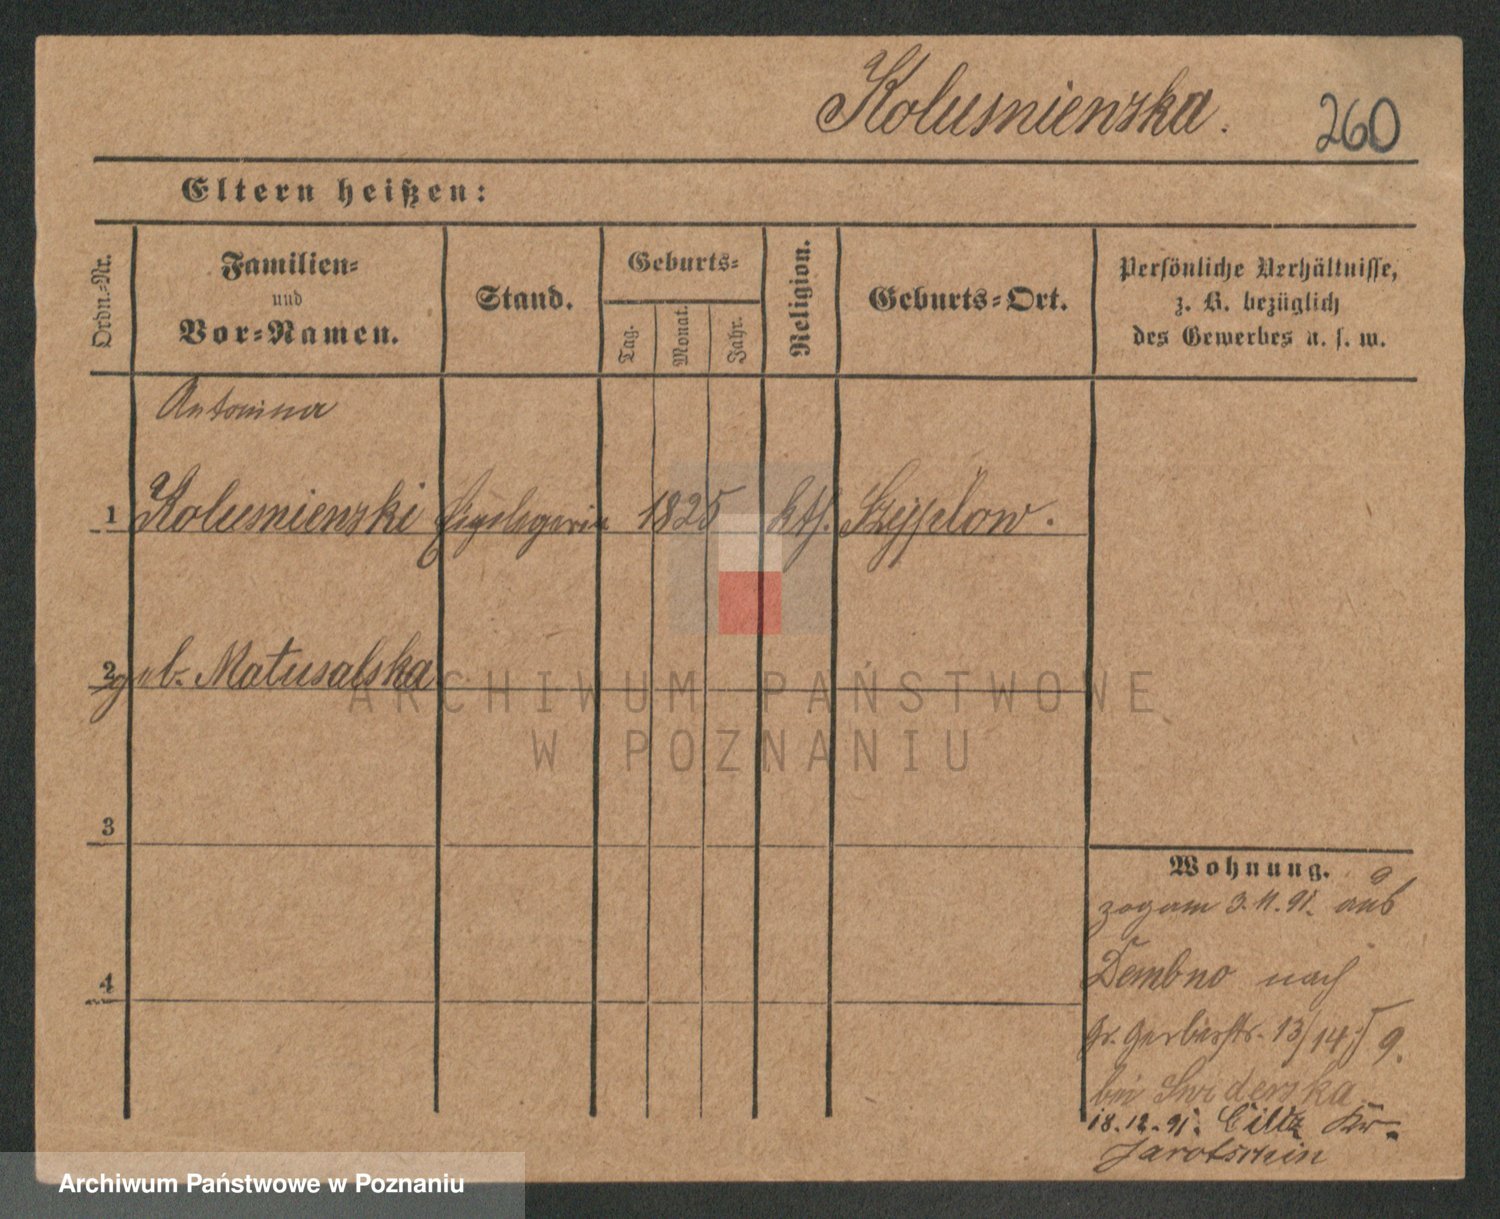 Kolusnienska. 260
Eltern heißen:
Ordn.-Nr.
Familien-
und
Vor-Namen.
Stand.
Geburts-
Tag.
Monat.
Jahr.
Religion.
Geburts-Ort.
Persönliche Verhältnisse,
z. B. bezüglich
des Gewerbes u. s. w.
Antonina
1 Kolusnienski 1825 kth.
2 geb. Matusalska
3
4
Wohnung.
zog am 3.11.91. aus
Dembno nach
Gr. Gerberstr. 13/14 9.
bei Swiderska
18.12.91. Kr.
Jarotschin
ARCHIWUM PAŃSTWOWE
W POZNANIU
Archiwum Państwowe w Poznaniu